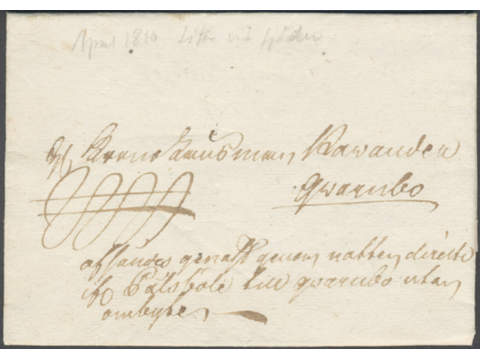 April 1810
Kronolänsman Kavander
Qvarnbo
afsändes genast genom natten directe
Pålsböle till qvarnbo utan
ombyte